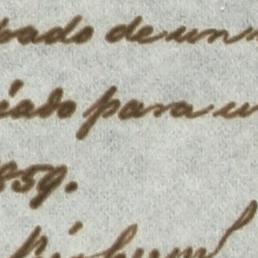 bado de un
iado para u
859.